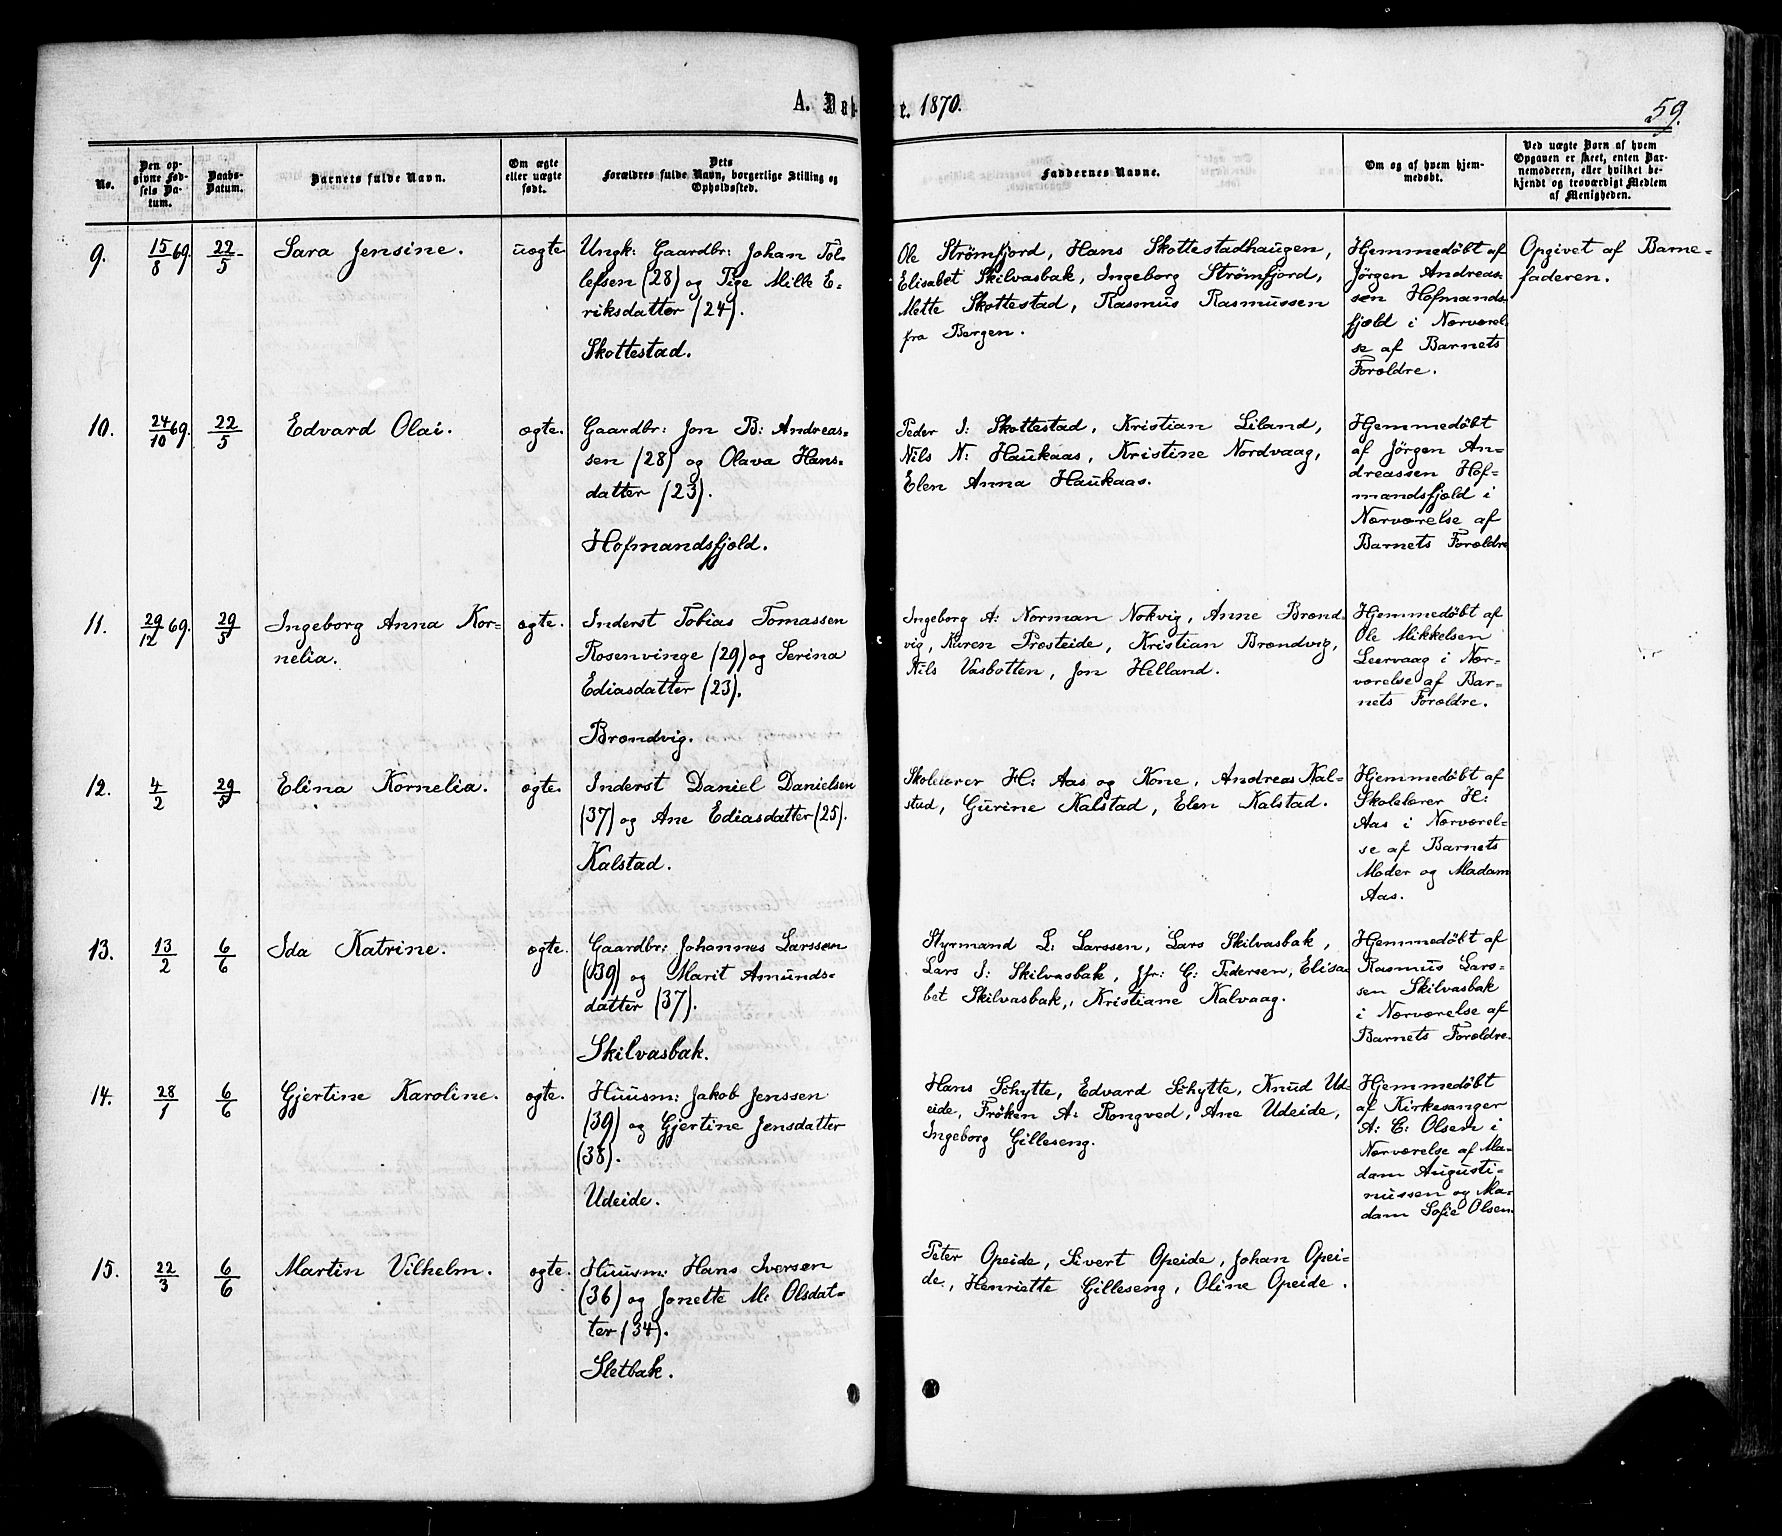 A. Døbte. 1870.
59.
No.
Den op-
givne Fød-
sels Da-
tum.
Daabs-
Datum.
Barnets fulde Navn.
Om ægte
eller uægte
født.
Dets
Forældres fulde Navn, borgerlige Stilling og
Opholdssted.
Faddernes Navne.
Om og af hvem hjem-
medøbt.
Ved uægte Børn af hvem
Opgaven er skeet, enten Bar-
nemoderen, eller hvilket be-
kjendt og troværdigt Medlem
af Menigheden.
9.
15/8 69.
22/5
Sara Jensine.
uægte
Ungk: Gaardbr: Johan Tol-
lefsen (28) og Pige Mille E-
riksdatter (24).
Skottestad.
Ole Strömfjord, Hans Skottestadhaugen,
Elisabet Skilvasbak, Ingeborg Strömfjord,
Mette Skottestad, Rasmus Rasmussen
fra Bergen.
Hjemmedøbt af
Jörgen Andreas-
sen Hofmands-
fjæld i Nærværel-
se af Barnets
Forældre.
Opgivet af Barne-
faderen.
10.
24/10 69.
22/5
Edvard Olai.
ægte.
Gaardbr: Jon B: Andreas-
sen (28) og Olava Hans-
datter (23).
Hofmandsfjæld.
Peder I: Skottestad, Kristian Liland,
Nils N: Haukaas, Kristine Nordvaag,
Elen Anna Haukaas.
Hjemmedøbt
af Jörgen An-
dreassen Hof-
mandsfjæld i
Nærværelse af
Barnets Forældre
11.
29/12 69.
29/5
Ingeborg Anna Kor-
nelia.
ægte.
Inderst Tobias Tomassen
Rosenvinge (29) og Serina
Ediasdatter (23).
Brændvig.
Ingeborg A: Norman Nokvig, Anne Brænd
vig, Karen Prosteide, Kristian Brændvig,
Nils Vasbotten, Jon Helland.
Hjemmedøbt af
Ole Mikkelsen
Leervaag i Nær-
værelse af Bar-
nets Forældre.
12.
4/2
29/5
Elina Kornelia.
ægte.
Inderst Daniel Danielsen
(37) og Ane Ediasdatter (25).
Kalstad.
Skolelærer H: Aas og Kone, Andreas Kal-
stad, Gurine Kalstad, Elen Kalstad.
Hjemmedøbt af
Skolelærer H:
Aas i Nærværel-
se af Barnets
Moder og Madam
Aas.
13.
13/2
6/6
Ida Katrine.
ægte.
Gaardbr: Johannes Larssen
(39) og Marit Amunds-
datter (37).
Skilvasbak.
Styrmand L: Larssen, Lars Skilvasbak,
Lars J: Skilvasbak, Jfr: G: Pedersen, Elisa-
bet Skilvasbak, Kristiane Kalvaag.
Hjemmedøbt af
Rasmus Lars-
sen Skilvasbak
i Nærværelse af
Barnets Forældre.
14.
28/1
6/6
Gjertine Karoline.
ægte.
Huusm: Jakob Jenssen
(39) og Gjertine Jensdatter
(38).
Udeide.
Hans Schytte, Edvard Schytte, Knud Ud-
eide, Fröken A: Rongved, Ane Udeide,
Ingeborg Gilleseng.
Hjemmedøbt
af Kirkesanger
A: C: Olsen i
Nærværelse af Ma-
dam Augusti-
nussen og Ma-
dam Sofie Olsen
15.
22/3
6/6
Martin Vilhelm.
ægte.
Huusm: Hans Iversen
(36) og Jonette M: Olsdat-
ter (34).
Sletbak.
Peter Opeide, Sivert Opeide, Johan Opei-
de, Henriette Gilleseng, Oline Opeide.